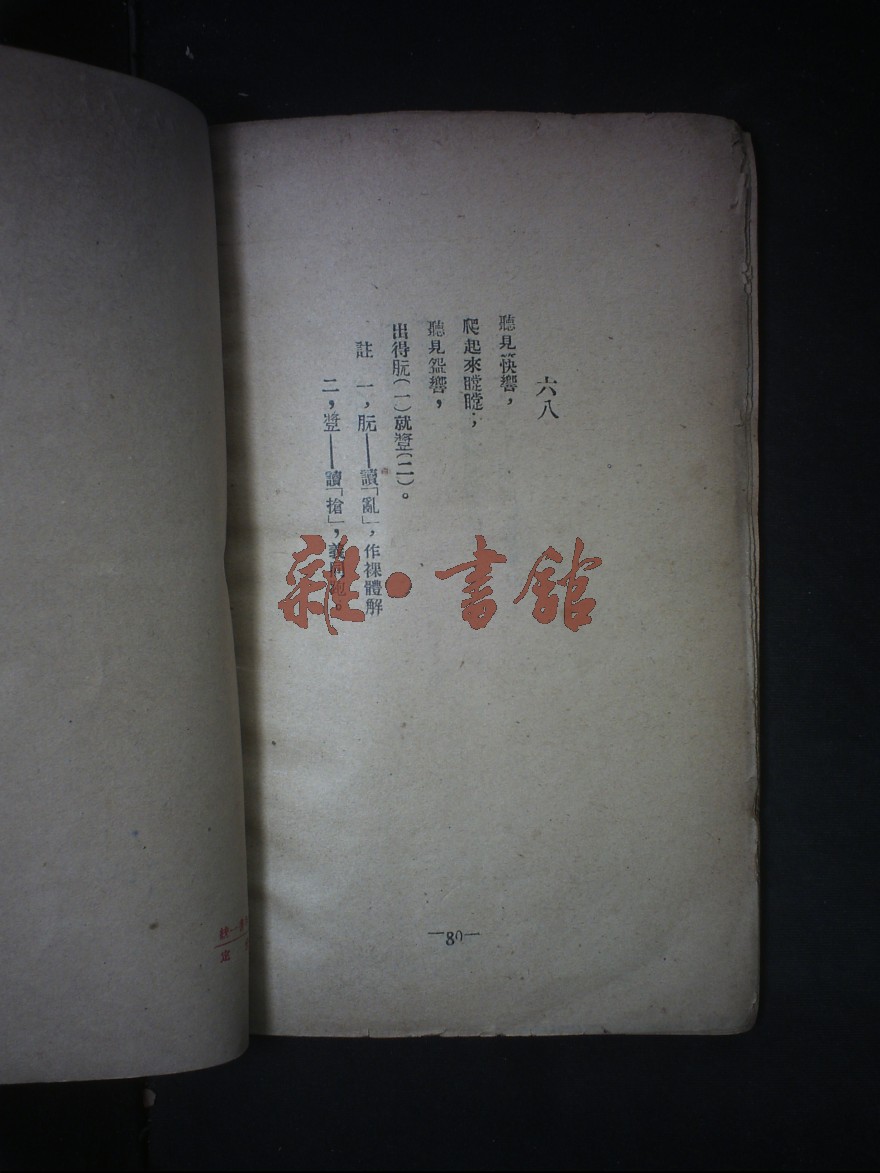 六八
聽見筷響，
爬起來瞠瞠；
聽見盌響，
出得朊(一)就蹔(二)。
註　一，朊——讀「亂」，作裸體解
二，蹔——讀「搶」，義同跑。
—80—
雜·書館